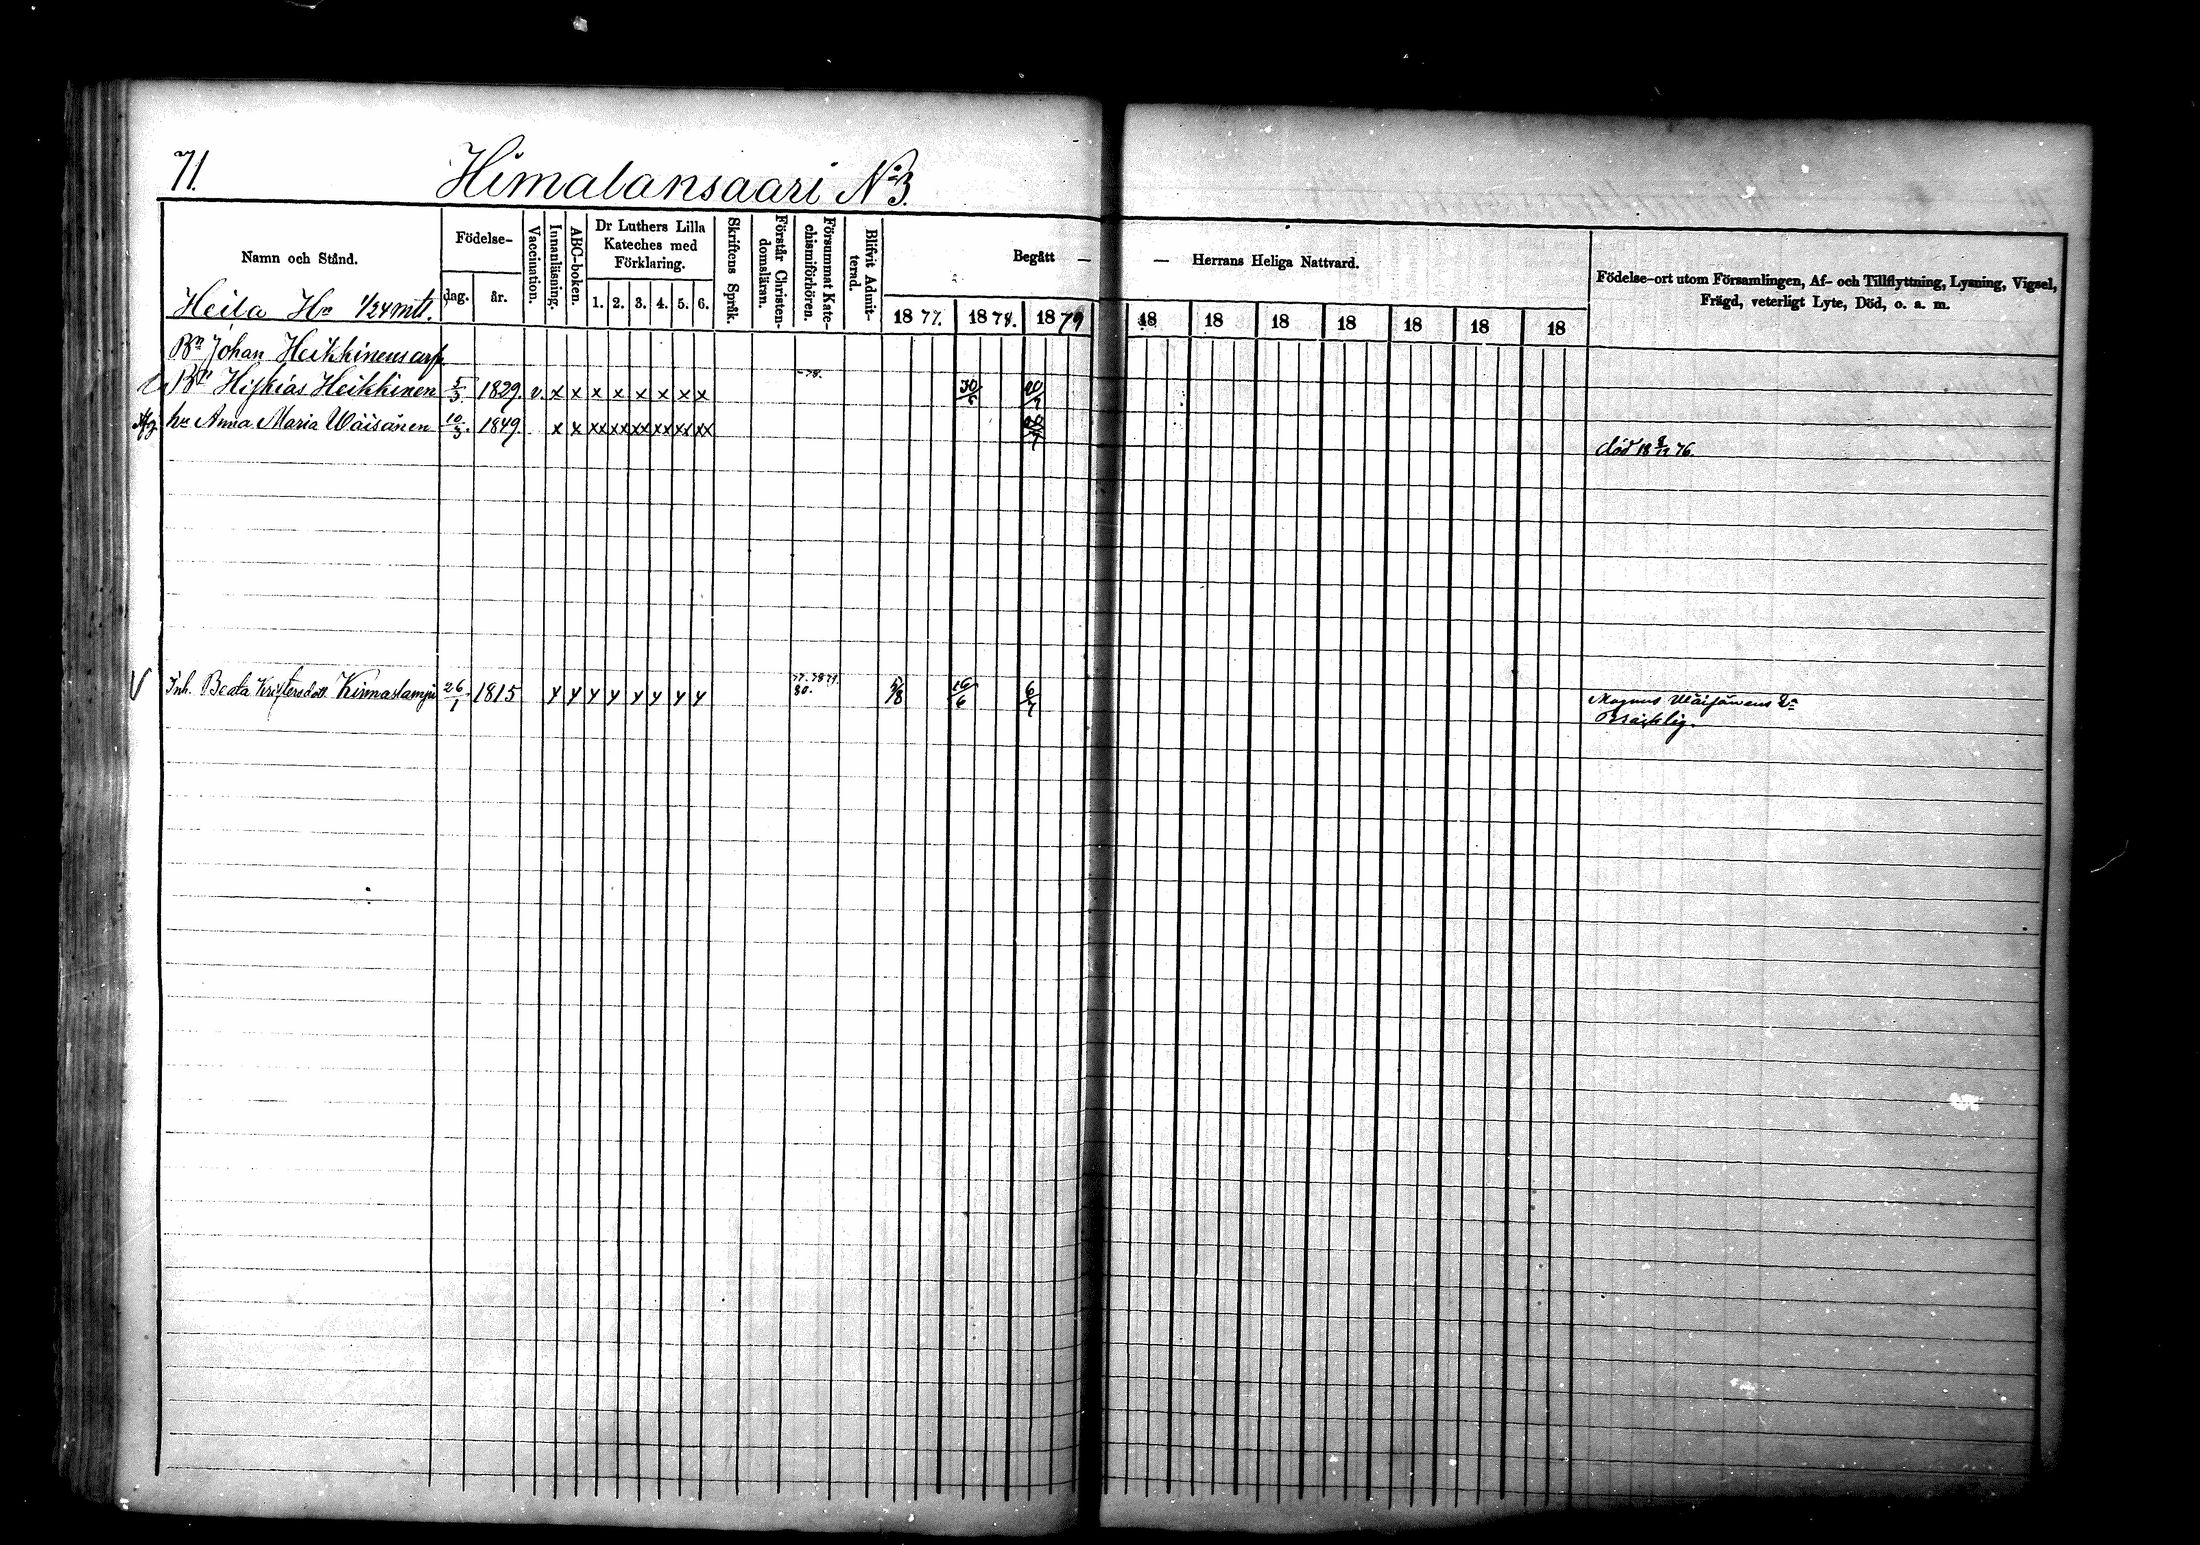 71.
Himalansaari No 3.
Namn och Stånd.
Födelse-
dag. år.
Vaccination.
Innanläsning.
ABC-boken.
Dr Luthers Lilla
Kateches med
Förklaring.
1. 2. 3. 4. 5. 6.
Skriftens Språk.
Förstår Christen-
domsläran.
Försummat Kate-
chismiförhören.
Blifvit Admit-
terad.
Begått — — Herrans Heliga Nattvard.
1877. 1878. 1879 18 18 18 18 18 18 18
Födelse-ort utom Församlingen, Af- och Tillflyttning, Lysning, Vigsel,
Frägd, veterligt Lyte, Död, o. a. m.
Heila Hn 1/24 mtl.
Bn Johan Heikkinens
Hiskias Heikkinen 5/3 1829. v. x x x x x x x x 78. 30/6 20/7
hu Anna Maria Wäisänen 10/3. 1849. x x xx xx xx xx xx xx 20/7
död 18 76.
Inh. Beata Kristersdotr Kirmaslampi 26/1 1815 x x x x x x x x 77. 78 79 80. 5/8 16/6 6/7
Magnus Wäisänens
Bräcklig.